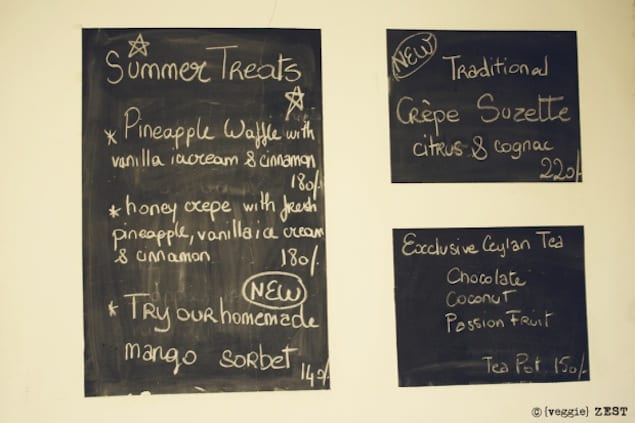 Summer Treats
* Pineapple Waffle with
vanilla icecream & cinnamon
180/.
* honey crepe with fresh
pineapple, vanilla ice cream
& cinnamon 180/.
NEW
* Try our homemade
mango sorbet
140/.
NEW
Traditional
Crêpe Suzette
citrus & cognac
220/.
Exclusive Ceylan Tea
Chocolate
Coconut
Passion Fruit
Tea Pot 150/.
© {veggie} ZEST